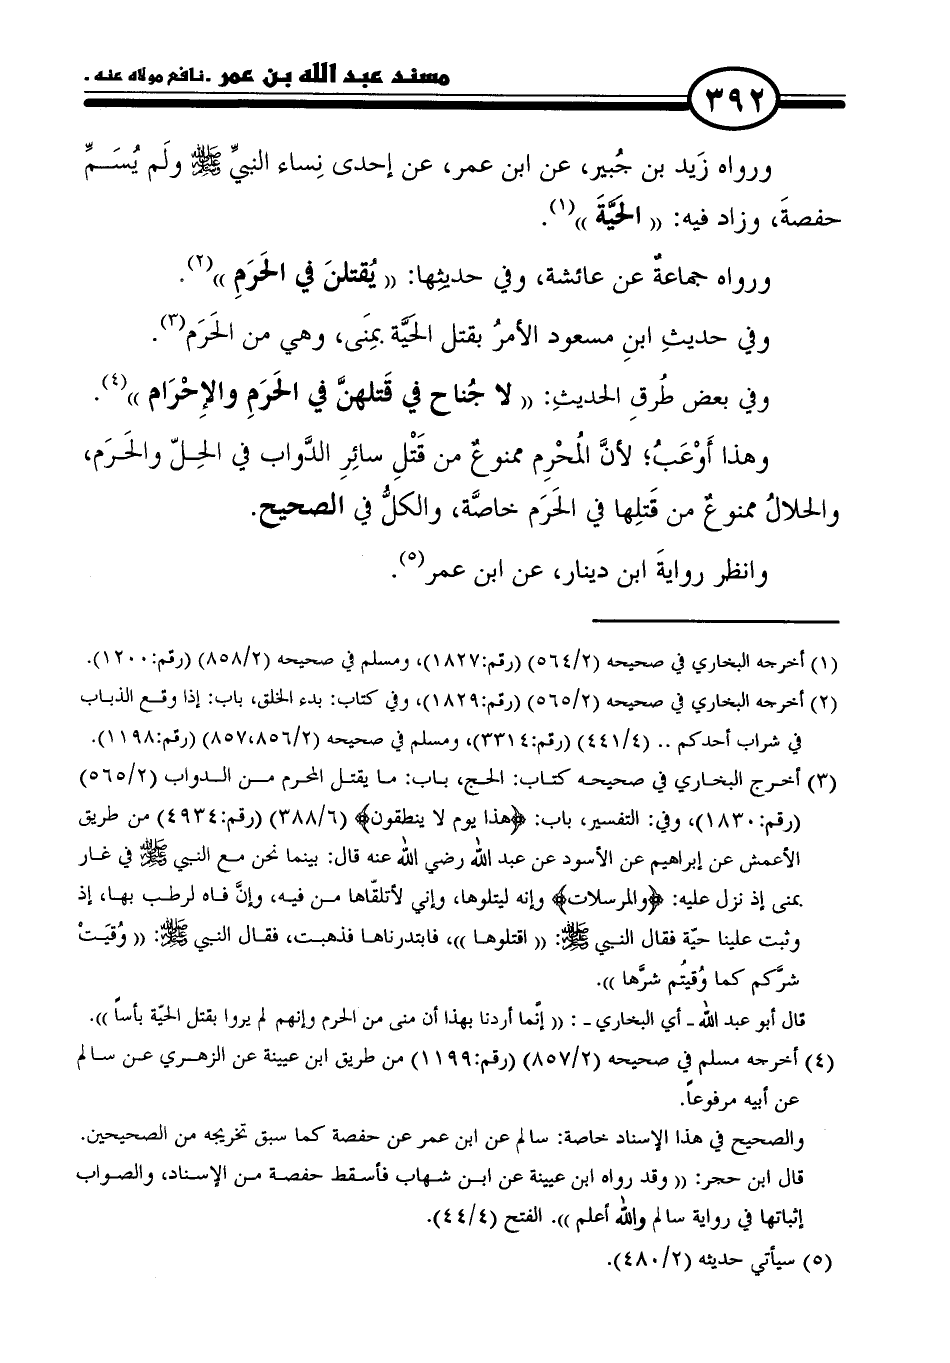 ٣٩٢ مسند عبد الله بن عمر .نافع مولاه عنه .
ورواه زَيد بن جُبير، عن ابن عمر، عن إحدى نِساء النبيِّ ﷺ ولَم يُسَمِّ
حفصةَ، وزاد فيه: « الحَيَّةَ »(١).
ورواه جماعةٌ عن عائشة، وفي حديثِها: « يُقتلنَ في الحَرَمِ »(٢).
وفي حديثِ ابنِ مسعود الأمرُ بقتل الحَيَّة بِمَنَى، وهي من الحَرَم(٣).
وفي بعض طُرقِ الحديثِ: « لا جُناح في قَتلهنَّ في الحَرَمِ والإِحْرَام »(٤).
وهذا أَوْعَبُ؛ لأنَّ المُحْرِم ممنوعٌ من قَتْلِ سائِرِ الدَّواب في الحِلّ والحَرَم،
والحلالُ ممنوعٌ من قَتلِها في الحَرَم خاصَّة، والكلُّ في الصحيح.
وانظر روايةَ ابن دينار، عن ابن عمر(٥).
(١) أخرجه البخاري في صحيحه (٥٦٤/٢) (رقم:١٨٢٧)، ومسلم في صحيحه (٨٥٨/٢) (رقم:١٢٠٠).
(٢) أخرجه البخاري في صحيحه (٥٦٥/٢) (رقم:١٨٢٩)، وفي كتاب: بدء الخلق، باب: إذا وقع الذباب
في شراب أحدكم .. (٤٤١/٤) (رقم:٣٣١٤)، ومسلم في صحيحه (٨٥٧،٨٥٦/٢) (رقم:١١٩٨).
(٣) أخرج البخاري في صحيحه كتاب: الحج، باب: ما يقتل المحرم من الدواب (٥٦٥/٢)
(رقم:١٨٣٠)، وفي: التفسير، باب: ﴿هذا يوم لا ينطقون﴾ (٣٨٨/٦) (رقم:٤٩٣٤) من طريق
الأعمش عن إبراهيم عن الأسود عن عبد الله رضي الله عنه قال: بينما نحن مع النبي ﷺ في غار
بمنى إذ نزل عليه: ﴿والمرسلات﴾ وإنه ليتلوها، وإني لأتلقّاها من فيه، وإنَّ فاه لرطب بها، إذ
وثبت علينا حيّة فقال النبي ﷺ: « اقتلوها »، فابتدرناها فذهبت، فقال النبي ﷺ: « وُقيَتْ
شرَّكم كما وُقيتُم شرَّها ».
قال أبو عبد الله - أي البخاري - : « إنّما أردنا بهذا أن منى من الحرم وإنهم لم يروا بقتل الحيّة بأساً ».
(٤) أخرجه مسلم في صحيحه (٨٥٧/٢) (رقم:١١٩٩) من طريق ابن عيينة عن الزهري عن سالم
عن أبيه مرفوعاً.
والصحيح في هذا الإسناد خاصة: سالم عن ابن عمر عن حفصة كما سبق تخريجه من الصحيحين.
قال ابن حجر: « وقد رواه ابن عيينة عن ابن شهاب فأسقط حفصة من الإسناد، والصواب
إثباتها في رواية سالم والله أعلم ». الفتح (٤٤/٤).
(٥) سيأتي حديثه (٤٨٠/٢).